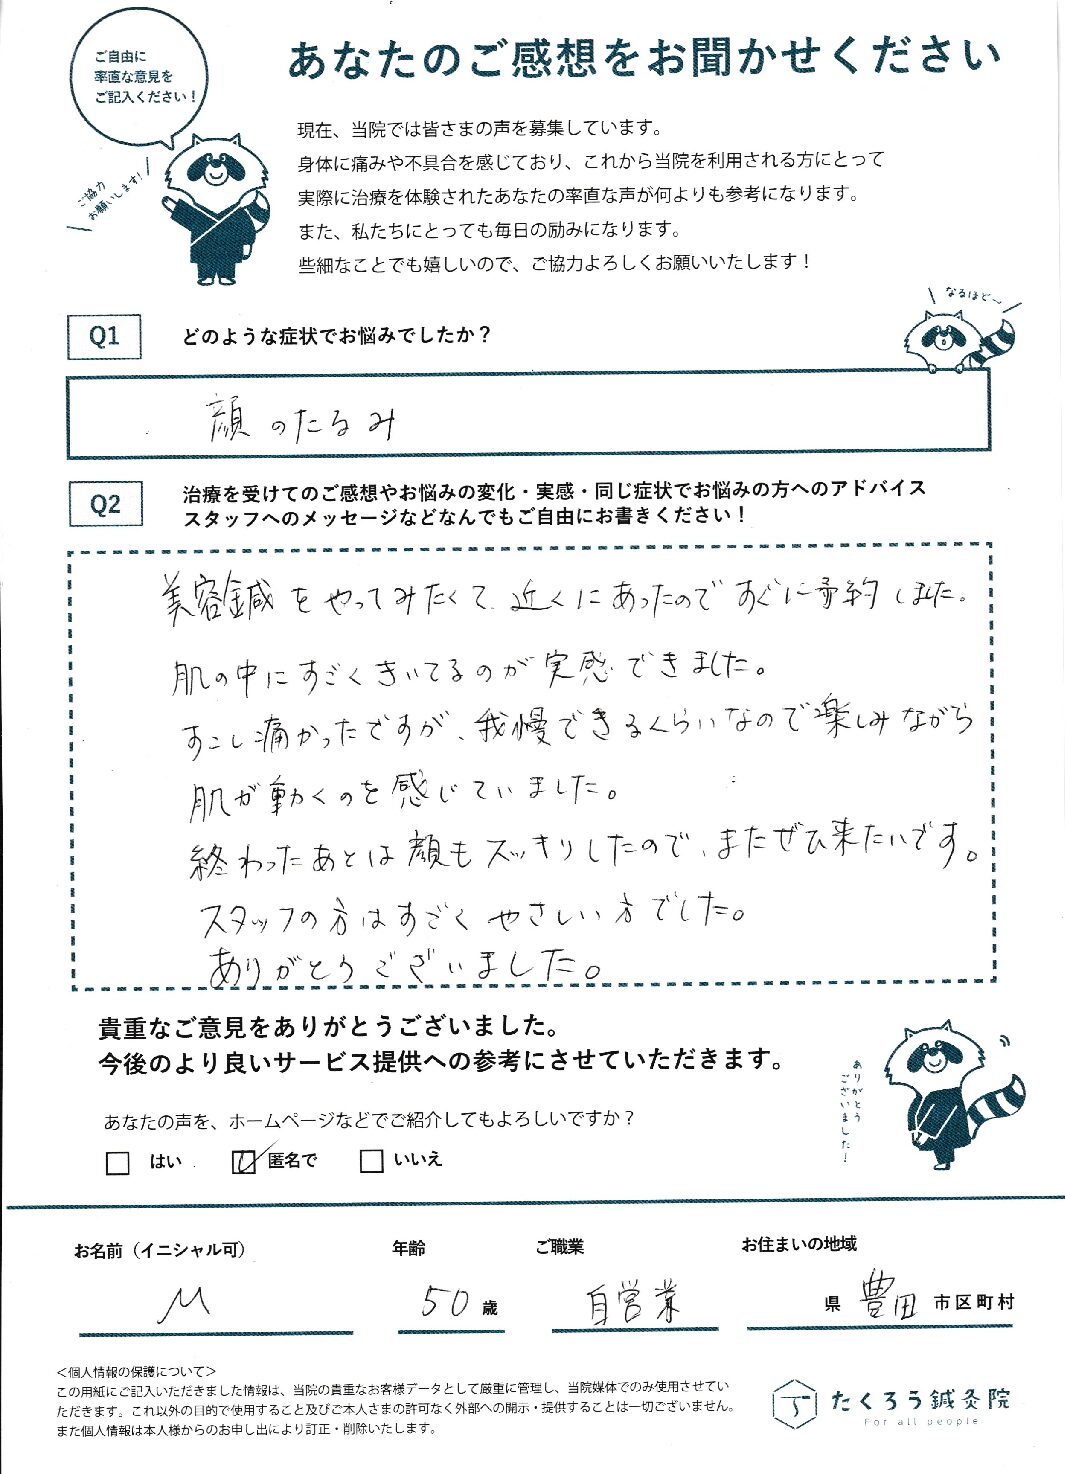 ご自由に
率直な意見を
ご記入ください！
あなたのご感想をお聞かせください
ご協力
お願いします！
現在、当院では皆さまの声を募集しています。
身体に痛みや不具合を感じており、これから当院を利用される方にとって
実際に治療を体験されたあなたの率直な声が何よりも参考になります。
また、私たちにとっても毎日の励みになります。
些細なことでも嬉しいので、ご協力よろしくお願いいたします！
なるほど〜
Q1 どのような症状でお悩みでしたか？
顔のたるみ
Q2 治療を受けてのご感想やお悩みの変化・実感・同じ症状でお悩みの方へのアドバイス
スタッフへのメッセージなどなんでもご自由にお書きください！
美容鍼をやってみたくて、近くにあったのですぐに予約しました。
肌の中にすごくきいてるのが実感できました。
すこし痛かったですが、我慢できるくらいなので楽しみながら
肌が動くのを感じていました。
終わったあとは顔もスッキリしたので、またぜひ来たいです。
スタッフの方はすごくやさしい方でした。
ありがとうございました。
貴重なご意見をありがとうございました。
今後のより良いサービス提供への参考にさせていただきます。
ありがとう
ございました！
あなたの声を、ホームページなどでご紹介してもよろしいですか？
はい 匿名で いいえ
お名前（イニシャル可） 年齢 ご職業 お住まいの地域
M 50歳 自営業 県 豊田 市区町村
＜個人情報の保護について＞
この用紙にご記入いただきました情報は、当院の貴重なお客様データとして厳重に管理し、当院媒体でのみ使用させてい
ただきます。これ以外の目的で使用すること及びご本人さまの許可なく外部への開示・提供することは一切ございません。
また個人情報は本人様からのお申し出により訂正・削除いたします。
たくろう鍼灸院
For all people